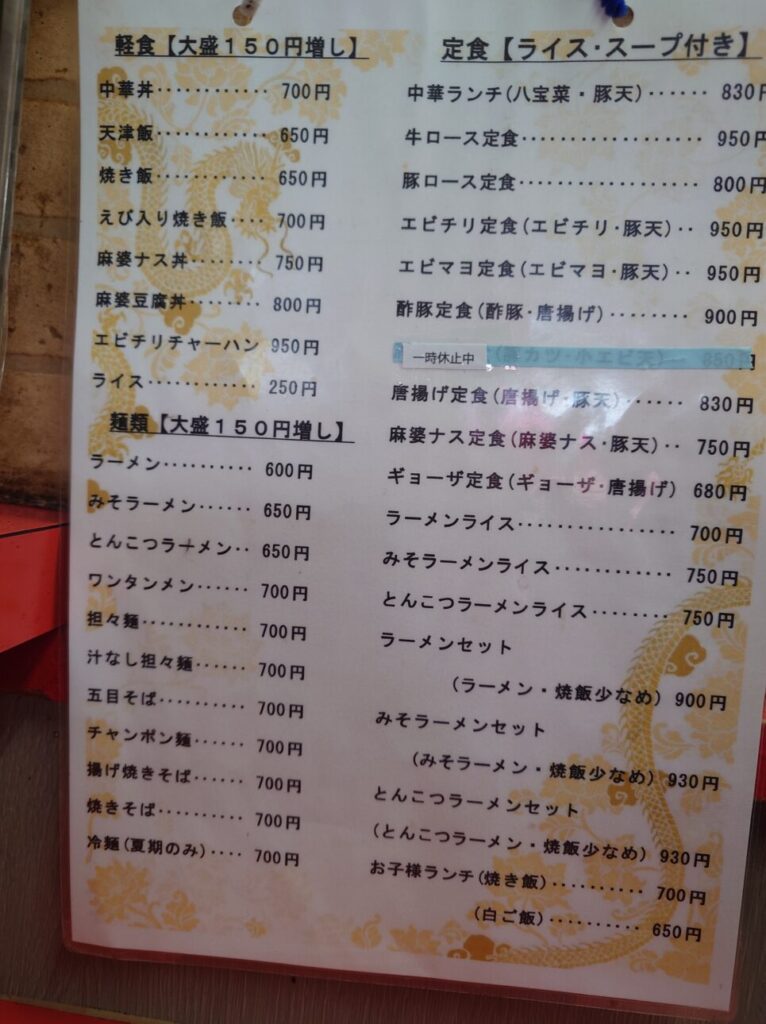 軽食【大盛１５０円増し】
中華丼············700円
天津飯············650円
焼き飯············650円
えび入り焼き飯····700円
麻婆ナス丼········750円
麻婆豆腐丼········800円
エビチリチャーハン 950円
ライス············250円
麺類【大盛１５０円増し】
ラーメン··········600円
みそラーメン······650円
とんこつラーメン··650円
ワンタンメン······700円
担々麺············700円
汁なし担々麺······700円
五目そば··········700円
チャンポン麺······700円
揚げ焼きそば······700円
焼きそば··········700円
冷麺(夏期のみ)····700円
定食【ライス･スープ付き】
中華ランチ(八宝菜・豚天)······830円
牛ロース定食··················950円
豚ロース定食··················800円
エビチリ定食(エビチリ･豚天)··950円
エビマヨ定食(エビマヨ･豚天)··950円
酢豚定食(酢豚･唐揚げ)········900円
一時休止中 カツ･小エビ天)··850円
唐揚げ定食(唐揚げ･豚天)······830円
麻婆ナス定食(麻婆ナス･豚天)··750円
ギョーザ定食(ギョーザ･唐揚げ) 680円
ラーメンライス················700円
みそラーメンライス············750円
とんこつラーメンライス········750円
ラーメンセット
(ラーメン・焼飯少なめ) 900円
みそラーメンセット
(みそラーメン・焼飯少なめ) 930円
とんこつラーメンセット
(とんこつラーメン・焼飯少なめ) 930円
お子様ランチ(焼き飯)··········700円
(白ご飯)··········650円